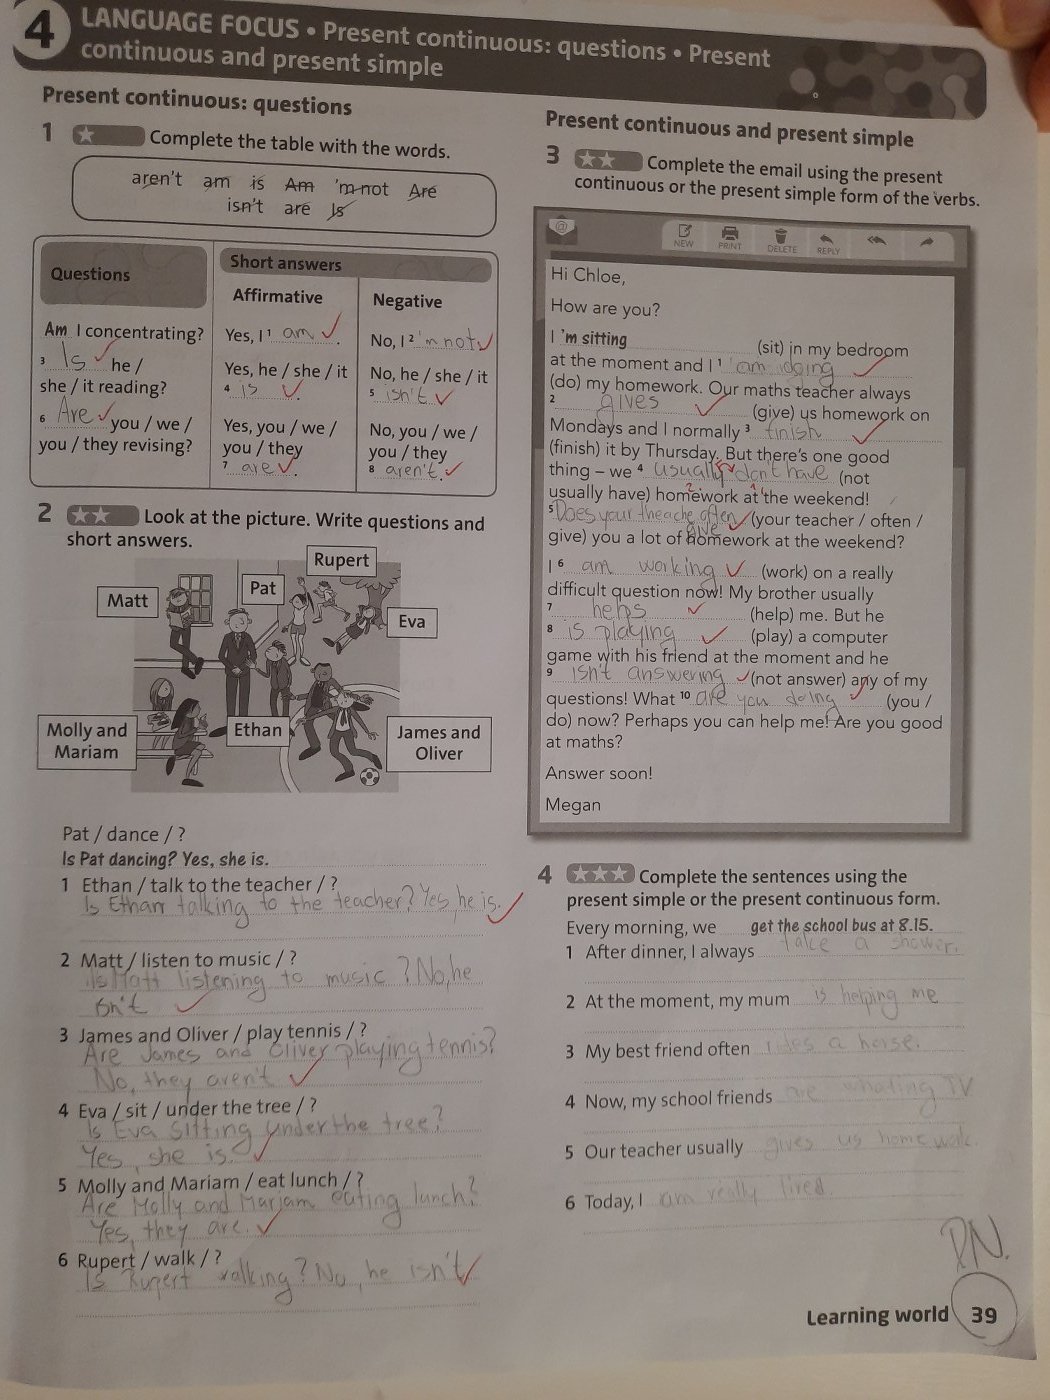 4
LANGUAGE FOCUS • Present continuous: questions • Present
continuous and present simple
Present continuous: questions
1 Complete the table with the words.
aren't am is Am 'm not Are
isn't are Is
Questions
Short answers
Affirmative
Negative
Am I concentrating?
Yes, I ¹ am .
No, I ² 'm not
³ Is he /
she / it reading?
Yes, he / she / it
⁴ is .
No, he / she / it
⁵ isn't
⁶ Are you / we /
you / they revising?
Yes, you / we /
you / they
⁷ are .
No, you / we /
you / they
⁸ aren't .
2 Look at the picture. Write questions and
short answers.
Rupert
Pat
Matt
Eva
Molly and
Mariam
Ethan
James and
Oliver
Pat / dance / ?
Is Pat dancing? Yes, she is.
1 Ethan / talk to the teacher / ?
Is Ethan talking to the teacher? Yes, he is.
2 Matt / listen to music / ?
Is Matt listening to music? No, he
isn't
3 James and Oliver / play tennis / ?
Are James and Oliver playing tennis?
No, they aren't
4 Eva / sit / under the tree / ?
Is Eva sitting under the tree?
Yes, she is.
5 Molly and Mariam / eat lunch / ?
Are Molly and Mariam eating lunch?
Yes, they are.
6 Rupert / walk / ?
Is Rupert walking? No, he isn't
Present continuous and present simple
3 Complete the email using the present
continuous or the present simple form of the verbs.
NEW PRINT DELETE REPLY
Hi Chloe,
How are you?
I 'm sitting (sit) in my bedroom
at the moment and I ¹ 'am doing
(do) my homework. Our maths teacher always
² gives (give) us homework on
Mondays and I normally ³ finish
(finish) it by Thursday. But there's one good
thing – we ⁴ usually don't have (not
usually have) homework at the weekend!
⁵ Does your theache often give (your teacher / often /
give) you a lot of homework at the weekend?
I ⁶ am working (work) on a really
difficult question now! My brother usually
⁷ helps (help) me. But he
⁸ is playing (play) a computer
game with his friend at the moment and he
⁹ isn't answering (not answer) any of my
questions! What ¹⁰ are you doing (you /
do) now? Perhaps you can help me! Are you good
at maths?
Answer soon!
Megan
4 Complete the sentences using the
present simple or the present continuous form.
Every morning, we get the school bus at 8.15.
1 After dinner, I always take a shower.
2 At the moment, my mum is helping me
3 My best friend often rides a horse.
4 Now, my school friends are whating TV
5 Our teacher usually gives us homewok.
6 Today, I am really tired.
P.N.
Learning world 39